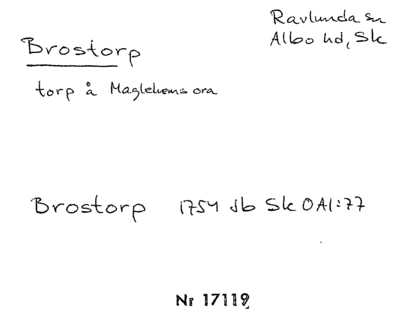 Ravlunda sn
Albo hd, Sk
Brostorp
torp å Maglehems ora
Brostorp 1754 Jb Sk OAl:77
Nr 17119